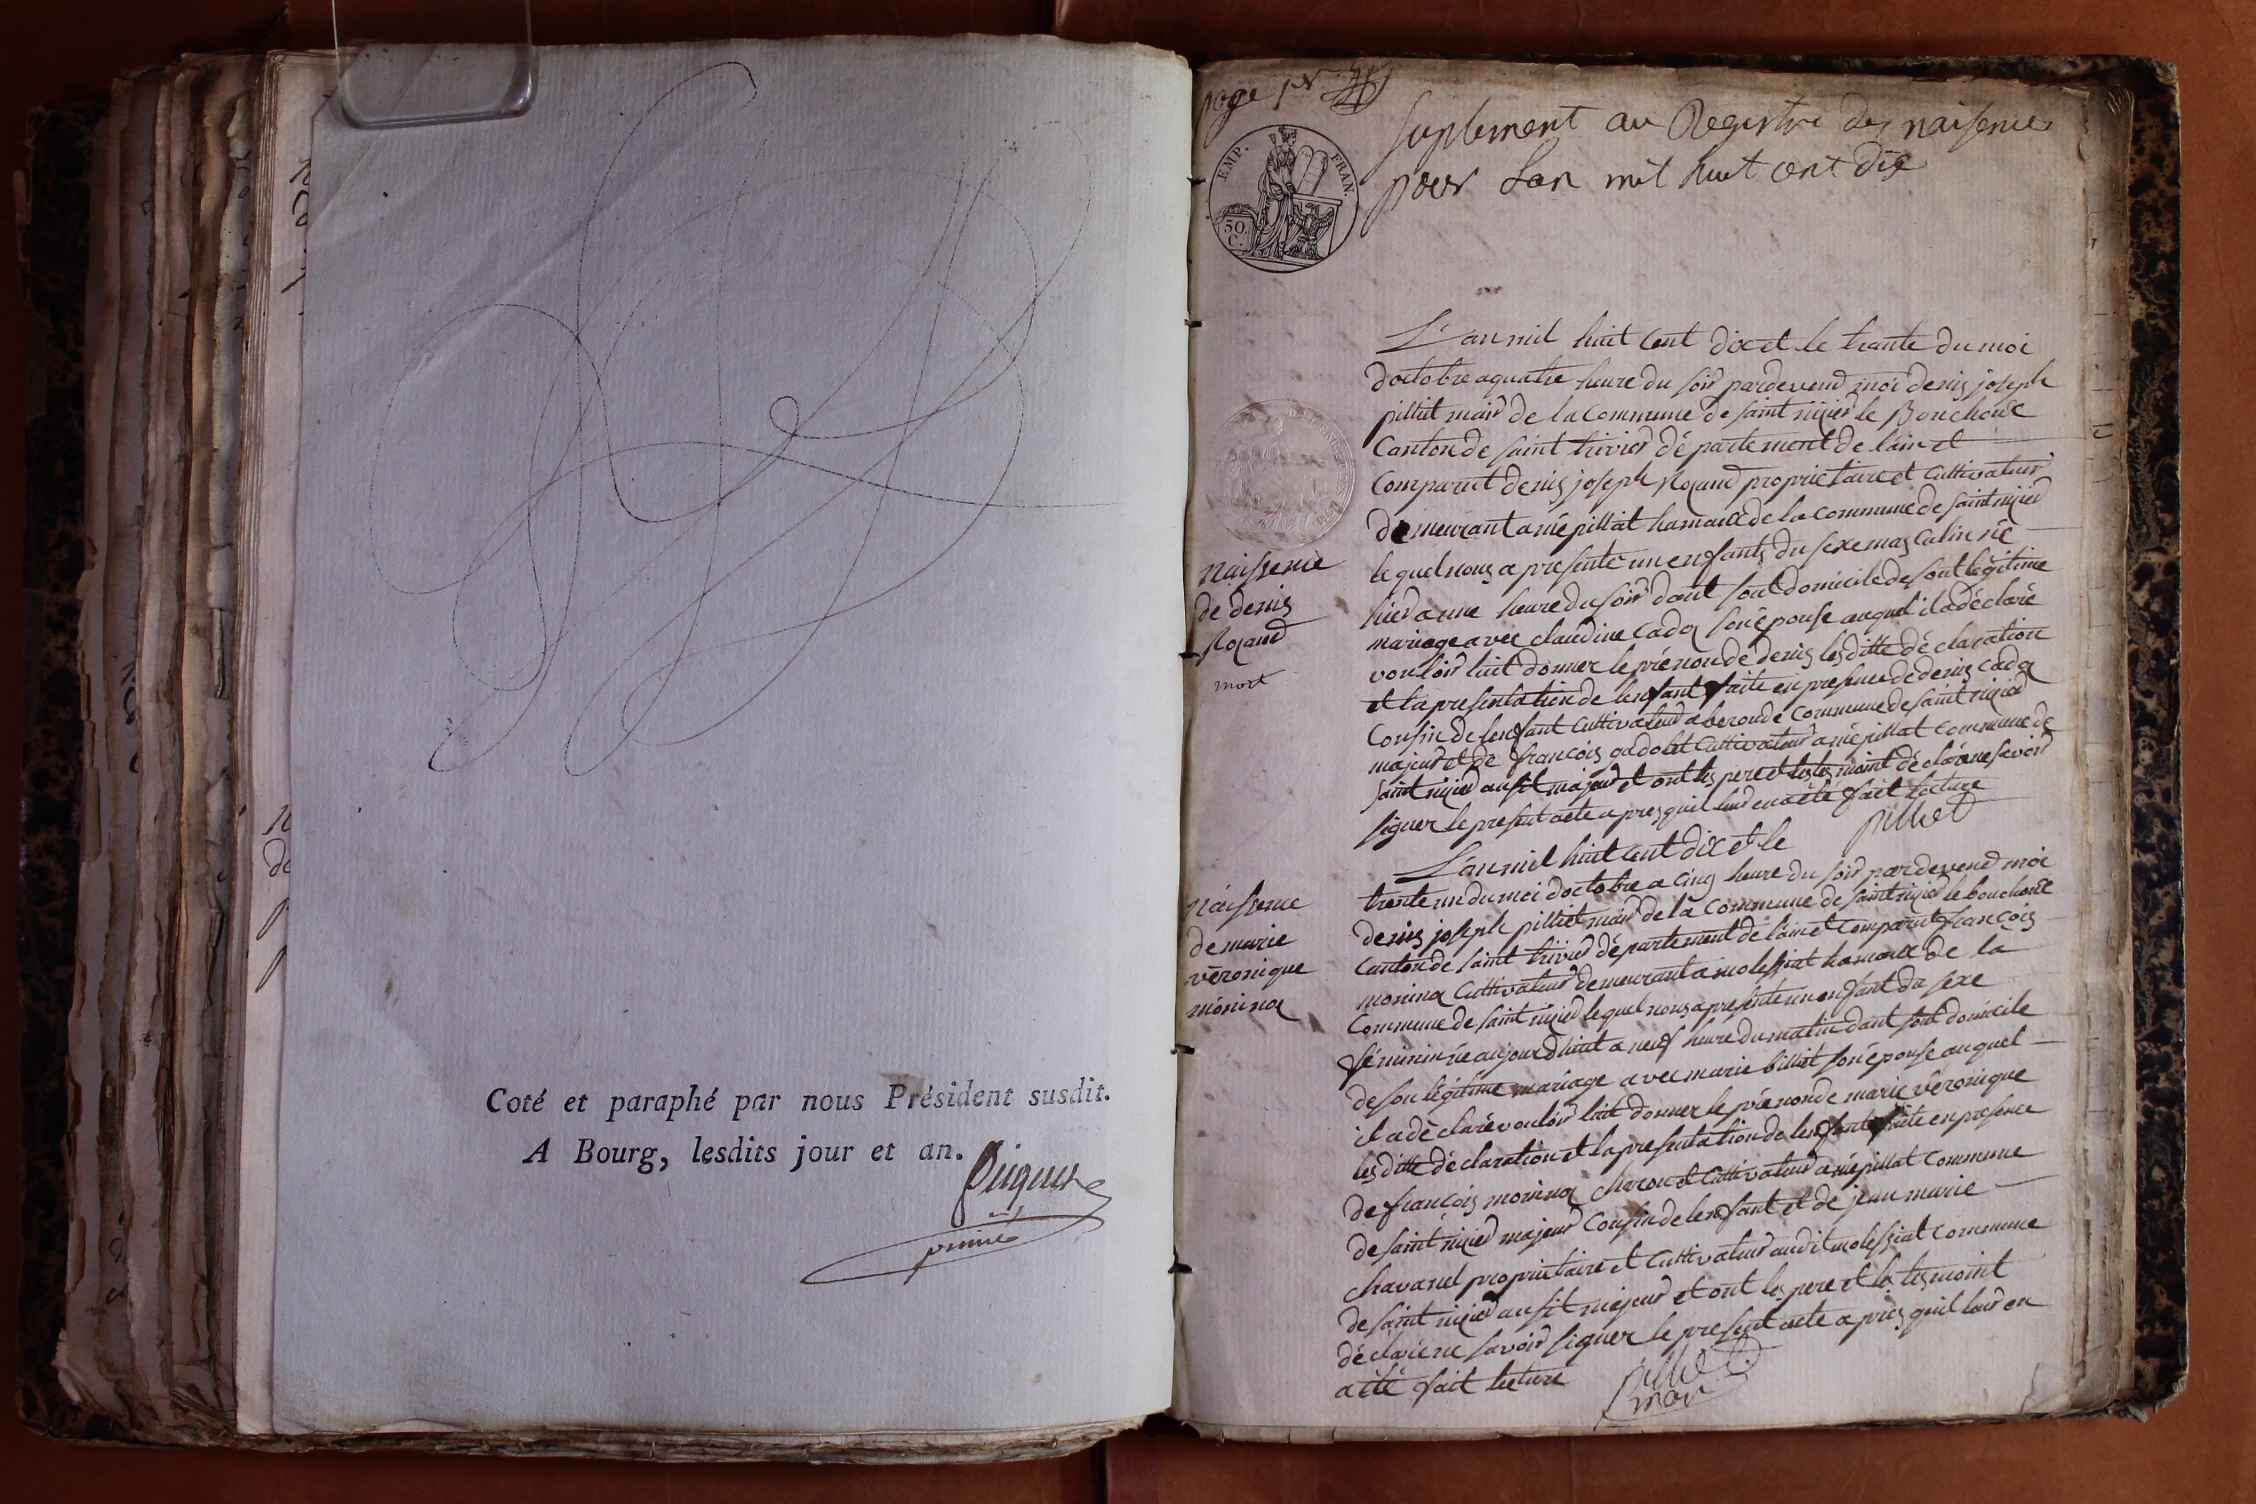 Coté et paraphé par nous Président susdit.
A Bourg, lesdits jour et an.
page 1er
Suplement au Registre des naisences
pour Lan mil huit cent dix
EMP. FRAN.
50. C.
L'an mil huit cent dix et le trante du moi
doctobre a quatre heure du soir pardevend moi denis joseph
pilliet mair de la Commune de saint nizier le Bouchoux
Canton de saint trivier département de lain et
Comparut denis joseph Rozand proprietaire et Cultivateur
demeurant a népillat hamaux de la Commune de saint nizier
le quel nous a presenté un enfants du sexe mas Calin né
hier a une heure du soir dont sont domicile de sont légitime
mariage avec claudine Cadoz son épouse auquel il a déclaré
vouloir luit donner le prénon de denis les ditte déclaration
et la presentation de lenfant faite en presence de denis Cadoz
Cousin de lenfant Cultivateur a beronde Commune de saint nizier
majeur et de françois Cultivateur a népillat Commune de
saint nizier ausit majeur et ont les pere et les tesmoint déclaré ne savoir
signer le present acte apres quil leur en a été fait lecture
pilliet
Naissence
de denis
Rozand
mort
L'an mil huit cent dix et le
trente un du moi doctobre a cinq heure du soir par devend moi
denis joseph pilliet mair de la Commune de saint nizier le bouchoux
Canton de saint trivier département de lain et Comparut françois
moninq Cultivateur demeurant a molessiat hamaux de la
Commune de saint nizier lequel nous a presenté un enfant du sexe
féminin né aujourdhuit a neuf heure du matin dant sont domicile
de son légitime mariage avec marie billiet son épouse auquel
il a déclaré vouloir luit donner le prénon de marie véronique
les ditte déclaration et la presentation de lenfant faite en presence
de françois moninq charon et Cultivateur a népillat Commune
de saint nizier majeur Cousin de lenfant et de jean marie
chavanel proprietaire et Cultivateur audit molessiat Commune
de saint nizier ausit majeur et ont les pere et les tesmoint
déclaré ne savoir signer le present acte apres quil leur en
a été fait lecture
pilliet
mair
Naissence
de marie
véronique
moninq